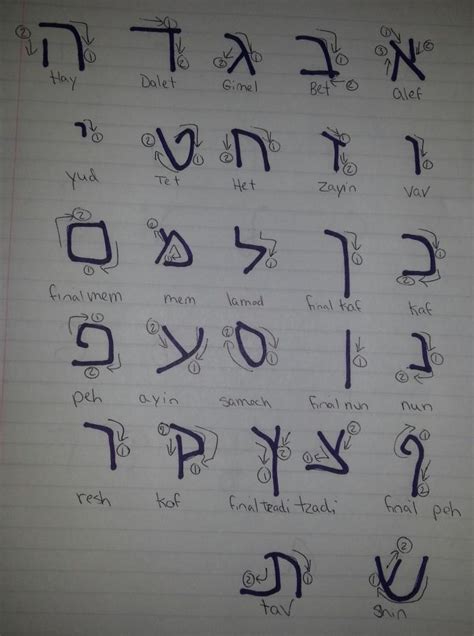 א ב ג ד ה
Hay Dalet Gimel Bet alef
ו ז ח ט י
yud Tet Het zayin vav
כ ך ל מ ם
final mem mem lamed final kaf kaf
נ ן ס ע פ
peh ayin samech final nun nun
ף צ ץ ק ר
resh kof final tzadi tzadi final peh
ש ת
tav shin